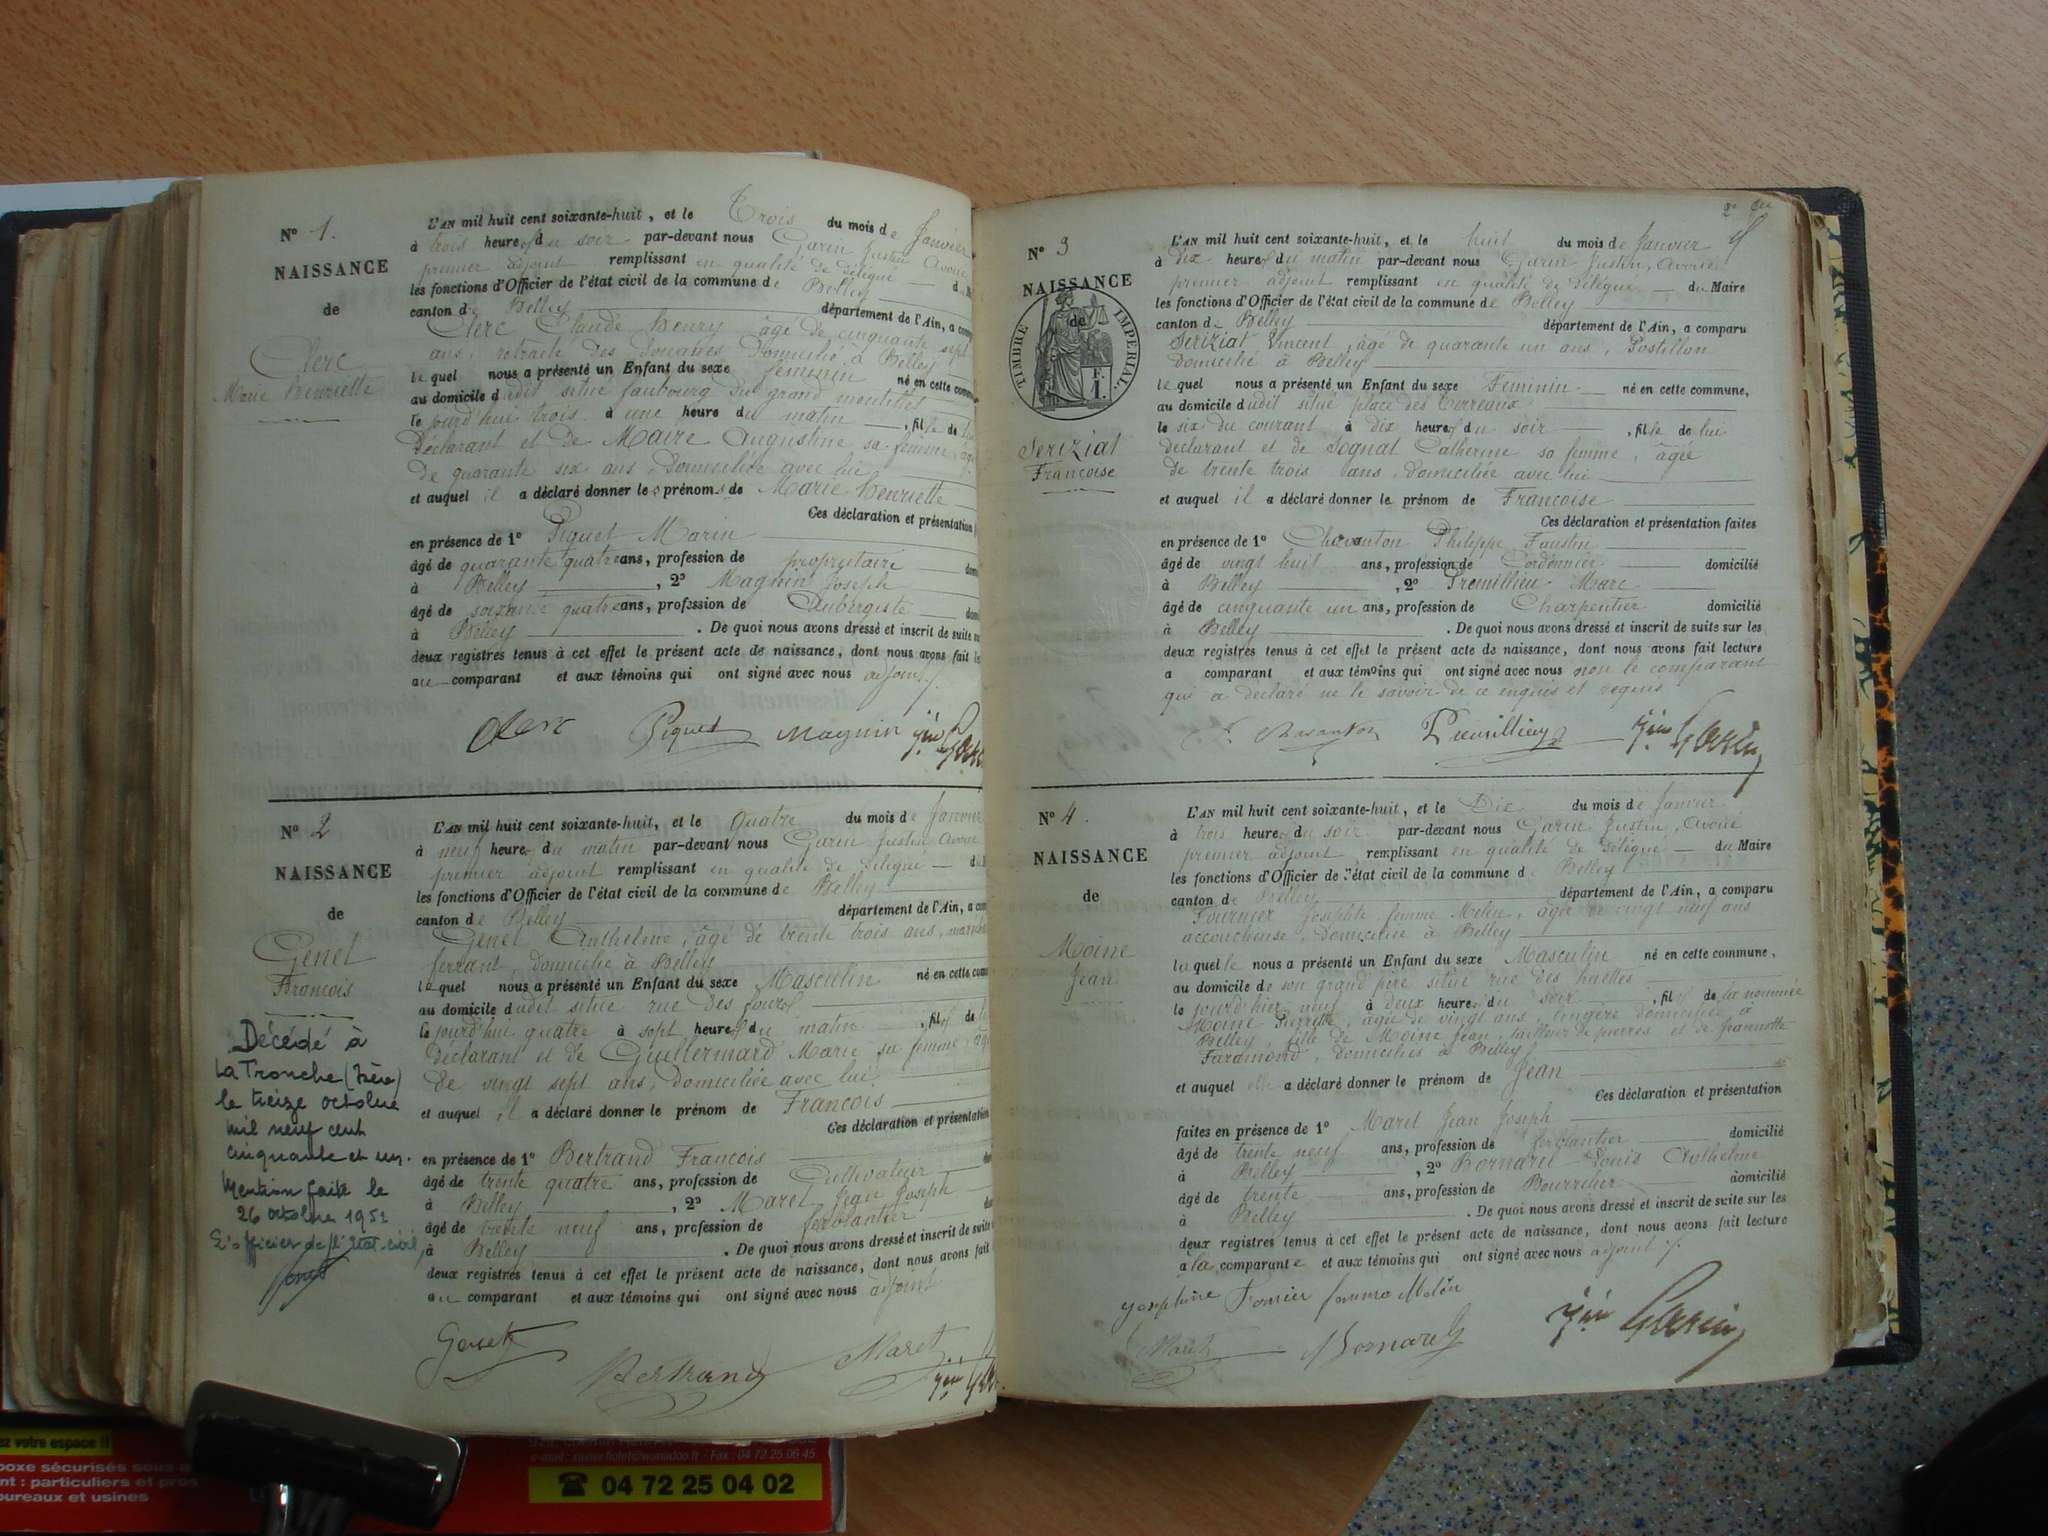 N° 1.
NAISSANCE
de
Clerc
Marie Henriette
L'AN mil huit cent soixante-huit, et le Trois du mois de Janvier
à trois heures du soir par-devant nous Garin Justin Avoué
premier adjoint remplissant en qualité de délégué du
les fonctions d'Officier de l'état civil de la commune de Belley
canton de Belley département de l'Ain, a comp
Clerc Claude Henry âgé de cinquante sept
ans, retraité des Douanes Domicilié à Belley
lequel nous a présenté un Enfant du sexe féminin né en cette comm
au domicile dudit situé faubourg du grand
le jourd'hui trois à une heure du matin, fille de
Déclarant et de Maire Augustine sa femme, âgée
de quarante six ans, Domiciliée avec lui
et auquel il a déclaré donner les prénoms de Marie Henriette
Ces déclaration et présentation
en présence de 1° Piquet Marin
âgé de quarante quatre ans, profession de propriétaire
à Belley, 2° Magnin Joseph
âgé de soixante quatre ans, profession de Aubergiste
à Belley. De quoi nous avons dressé et inscrit de suite
deux registres tenus à cet effet le présent acte de naissance, dont nous avons fait
au comparant et aux témoins qui ont signé avec nous adjoint
Clerc Piquet Magnin Jin Garin
N° 2
NAISSANCE
de
Genet
François
Décédé à
La Tronche (Isère)
le treize octobre
mil neuf cent
cinquante et un.
Mention faite le
26 octobre 1951
L'officier de l'état-civil,
L'AN mil huit cent soixante-huit, et le Quatre du mois de Janvier
à neuf heures du matin par-devant nous Garin Justin Avoué
premier adjoint remplissant en qualité de délégué
les fonctions d'Officier de l'état civil de la commune de Belley
canton de Belley département de l'Ain, a com
Genet Anthelme, âgé de trente trois ans, maréchal
ferrant, domicilié à Belley
lequel nous a présenté un Enfant du sexe Masculin né en cette com
au domicile dudit situé rue des fours
le jourd'hui quatre à sept heures du matin, fils de
Déclarant et de Guillermard Marie sa femme, âgée
de vingt sept ans, domiciliée avec lui
et auquel il a déclaré donner le prénom de François
Ces déclaration et présentation
en présence de 1° Bertrand François
âgé de trente quatre ans, profession de Cultivateur
à Belley, 2° Maret Jean Joseph
âgé de trente neuf ans, profession de ferblantier
à Belley. De quoi nous avons dressé et inscrit de suite
deux registres tenus à cet effet le présent acte de naissance, dont nous avons fait
au comparant et aux témoins qui ont signé avec nous adjoint
Genet
Bertrand Maret
N° 3
NAISSANCE
de
TIMBRE IMPERIAL.
F. 1.
Seriziat
Françoise
L'AN mil huit cent soixante-huit, et le huit du mois de Janvier
à dix heures du matin par-devant nous Garin Justin, Avoué
premier adjoint remplissant en qualité de délégué du Maire
les fonctions d'Officier de l'état civil de la commune de Belley
canton de Belley département de l'Ain, a comparu
Seriziat Vincent, âgé de quarante un ans, Postillon
domicilié à Belley
lequel nous a présenté un Enfant du sexe Féminin né en cette commune,
au domicile dudit situé place des Terreaux
le six du courant à dix heures du soir, fille de lui
déclarant et de Sognat Catherine sa femme, âgée
de trente trois ans, domiciliée avec lui
et auquel il a déclaré donner le prénom de Françoise
Ces déclaration et présentation faites
en présence de 1° Chavanton Philippe Faustin
âgé de vingt huit ans, profession de Cordonnier domicilié
à Belley, 2° Premillieu Marc
âgé de cinquante un ans, profession de Charpentier domicilié
à Belley. De quoi nous avons dressé et inscrit de suite sur les
deux registres tenus à cet effet le présent acte de naissance, dont nous avons fait lecture
a comparant et aux témoins qui ont signé avec nous non le comparant
qui a déclaré ne le savoir de ce enquis et requis
Chavanton Premillieu Jin Garin
N° 4.
NAISSANCE
de
Moine
Jean
L'AN mil huit cent soixante-huit, et le Dix du mois de Janvier
à trois heures du soir par-devant nous Garin Justin, Avoué
premier adjoint remplissant en qualité de délégué du Maire
les fonctions d'Officier de l'état civil de la commune de Belley
canton de Belley département de l'Ain, a comparu
Fournier Josephte femme Melen, âgée de vingt neuf ans
accoucheuse, domiciliée à Belley
laquelle nous a présenté un Enfant du sexe Masculin né en cette commune,
au domicile de son grand père situé rue des
le jourd'hier neuf à deux heures du soir, fils de la nommée
Moine Pierrette, âgée de vingt ans, lingère domiciliée à
Belley, fille de Moine Jean, tailleur de pierres et de Jeannette
Faramond, domiciliés à Belley
et auquel elle a déclaré donner le prénom de Jean
Ces déclaration et présentation
faites en présence de 1° Maret Jean Joseph
âgé de trente neuf ans, profession de ferblantier domicilié
à Belley, 2° Bornarel Louis Anthelme
âgé de trente ans, profession de Bourrelier domicilié
à Belley. De quoi nous avons dressé et inscrit de suite sur les
deux registres tenus à cet effet le présent acte de naissance, dont nous avons fait lecture
a la comparante et aux témoins qui ont signé avec nous adjoint
femme
Maret Bornarel Jin Garin
ez votre espace !!
boxe sécurisés sous
nt : particuliers et pros
bureaux et usines
Fax : 04 72 25 06 45
☎ 04 72 25 04 02